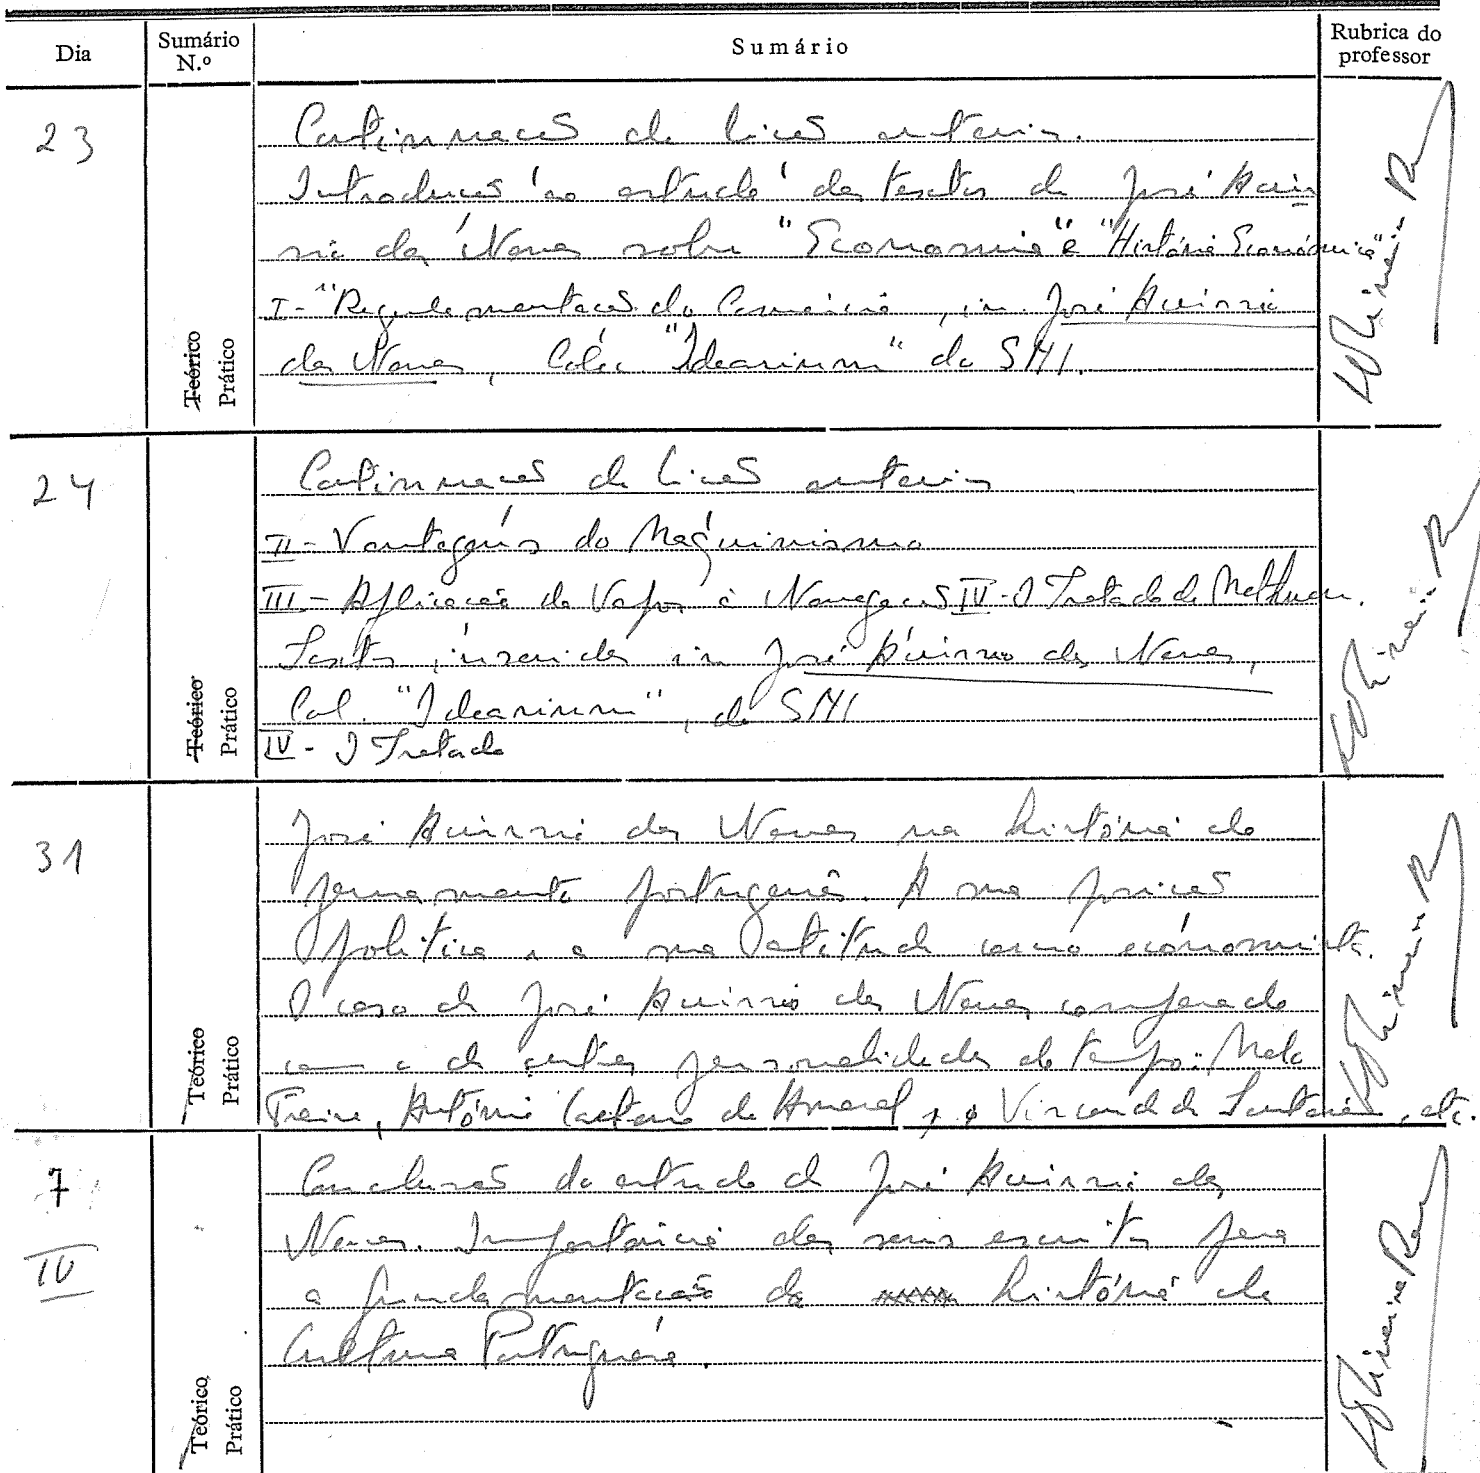 Dia
Sumário N.º
Sumário
Rubrica do professor
23
Continuação da lição anterior.
Introdução ao estudo dos textos de José Acúrsio
das Neves sobre "Economia" e "História Económica"
I - "Regulamentação do Comércio, in José Acúrsio
das Neves, Colec "Idearium" do SNI.
Teórico
Prático
24
Continuação da lição anterior
II - Vantagens do Maquinismo
III - Aplicação do Vapor à Navegação IV - O Tratado de Methuen.
Textos inseridos in José Acúrsio das Neves,
Col. "Idearium", do SNI
IV - O Tratado
Teórico
Prático
31
José Acúrsio das Neves na história do
pensamento português. A sua posição
política e a sua atitude como economista.
O caso de José Acúrsio das Neves comparado
com o de outras personalidades do tempo: Melo
Freire, António Caetano do Amaral, o Visconde de Santarém, etc.
Teórico
Prático
7
IV
Conclusão do estudo de José Acúrsio das
Neves. Importância dos seus escritos para
a fundamentação da história da
Cultura Portuguesa.
Teórico
Prático